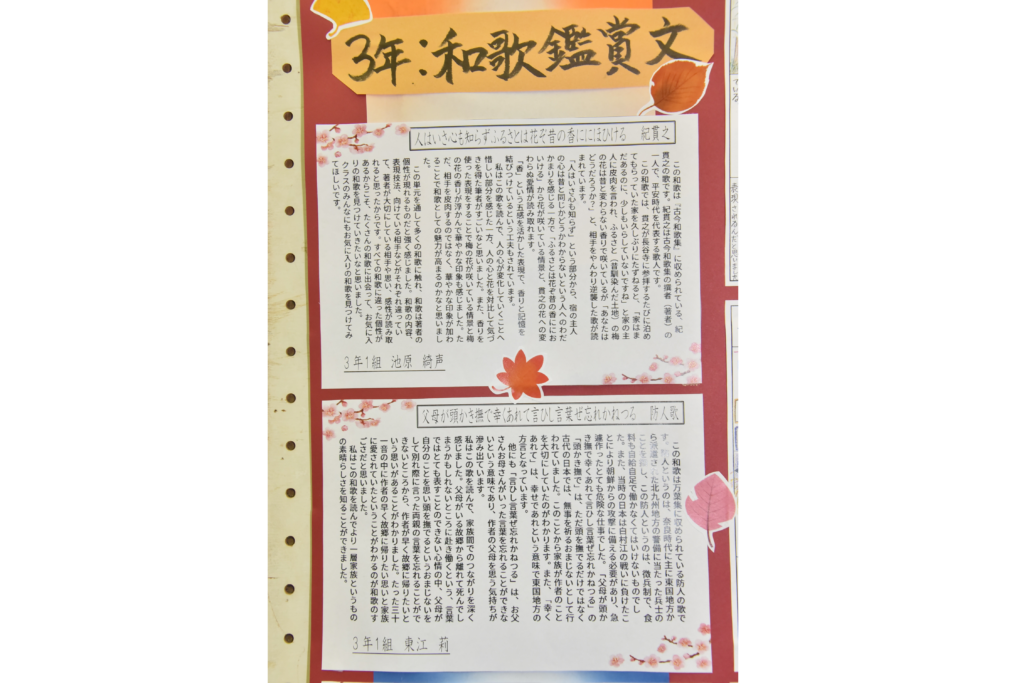 3年:和歌鑑賞文
人はいさ心も知らずふるさとは花ぞ昔の香ににほひける　紀貫之
この和歌は「古今和歌集」に収められている、紀
貫之の歌です。紀貫之は古今和歌集の撰者（著者）の
一人で、平安時代を代表する歌人です。
この和歌では、貫之が長谷寺に参拝するたびに泊め
てもらっていた家を久しぶりにたずねると、「家はま
だあるのに、少しもいらしてないですね」と家の主
人に皮肉を言われ、ふるさと（昔馴染んだ土地）の梅
の花は昔と変わらない香りで咲いているが「あなたは
どうだろうか？」と、相手をやんわり逆襲した歌が読
まれています。
「人はいさ心も知らず」という部分から、宿の主人
の心は昔と同じかわからないという人へのわだ
かまりを感じる一方で「ふるさとは花ぞ昔の香ににお
いける」から花が咲いている情景と、貫之の花への変
わらぬ愛情が読み取れます。
「香」という五感を活かした表現で、香りと記憶を
結びつけているという工夫もされています。
私はこの歌を読んで、人の心が変化していくことへ
惜しい部分を感じた一方、人の心と花を対比して気づ
きを得た筆者がすごいなと思いました。また、香りを
使った表現をすることで梅の花が咲いている情景と梅
の花の香りが浮かんで華やかな印象も感じました。た
だ、相手を皮肉するのではなく、華やかな印象が加わ
ることで和歌としての魅力が高まるのかなと思いまし
た。
この単元を通して多くの和歌に触れ、和歌は著者の
個性が現れるものだと強く感じました。和歌の内容、
表現技法、向けている相手などがそれぞれ違ってい
て、著者が大切にしている相手や思い、感性が読み取
れると思ったからです。すべての和歌に違った個性が
あるからこそ、たくさんの和歌に出会って、お気に入
りの和歌を見つけていきたいなと思いました。
クラスのみんなにもお気に入りの和歌を見つけてみ
てほしいです。
3年1組　池原　綺声
父母が頭かき撫で幸くあれて言ひし言葉ぜ忘れかねつる　防人歌
この和歌は万葉集に収められている防人の歌で
す。防人というのは、奈良時代に主に東国地方か
ら派遣された北九州地方の警備に当たった兵士の
ことを言い、この防人というのは、徴兵制で、食
料も自給自足で働かなくてはいけないものでし
た。また、当時の日本は白村江の戦いに負けたこ
とにより朝鮮からの攻撃に備える必要があり、急
遽作ったとても危険な仕事でした。「父母が頭か
き撫で幸くあれて言ひし言葉ぜ忘れかねつる」の
「頭かき撫で」は、ただ頭を撫でるだけではなく
古代の日本では、無事を祈るおまじないとして行
われていました。このことから家族が作者のこと
を大切にしていたのがわかります。また、「幸く
あれて」は、幸せであれという意味で東国地方の
方言となっています。
他にも「言ひし言葉ぜ忘れかねつる」は、お父
さんお母さんがいった言葉を忘れることができな
いという意味であり、作者の父母を思う気持ちが
滲み出ています。
私はこの歌を読んで、家族間でのつながりを深く
感じました。父母がいる故郷から離れて死んでし
まうかもしれないところに赴き働くという、言葉
ではとても表すことのできない心情の中、父母が
自分のことを思い頭を撫でるというおまじないを
して別れ際に言った両親の言葉を忘れることがで
きないところから、作者が早く故郷に帰りたいと
いう思いがあることがわかりました。たった三十
一音の中に作者の早く故郷に帰りたい思いと家族
に愛されていたということがわかるのが和歌のす
ごさだと思いました。
私はこの和歌を読んでより一層家族というもの
の素晴らしさを知ることができました。
3年1組　東江　莉